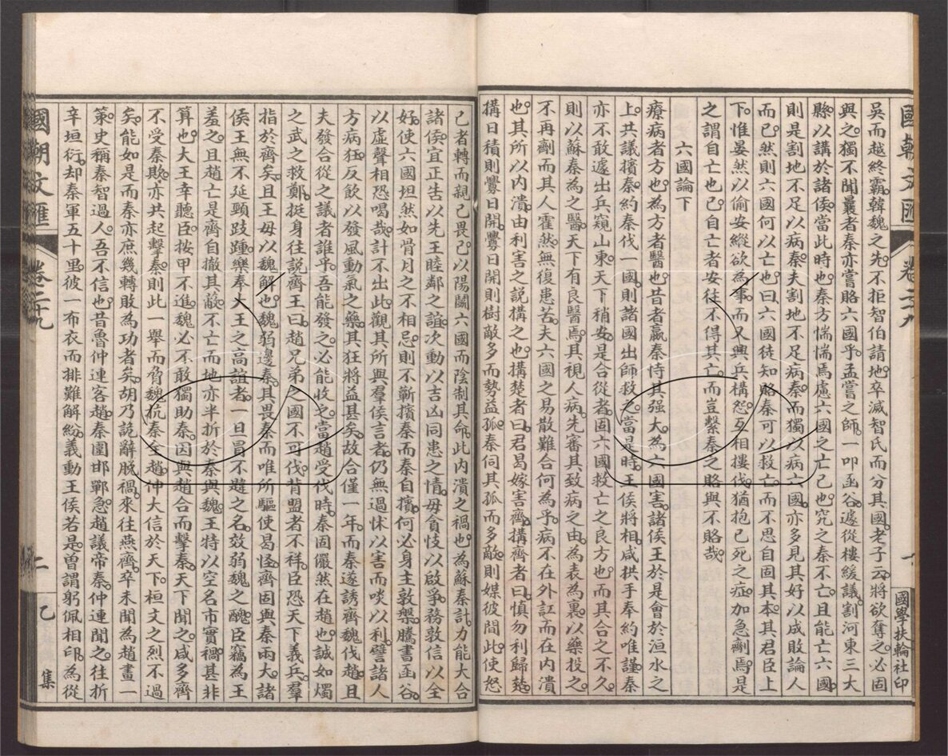 國朝文匯 卷二十九 國學扶輪社印
吳而越終霸韓魏之先不拒智伯請地卒滅智氏而分其國老子云將欲奪之必固
與之獨不聞乎者秦亦嘗賂六國乎孟嘗之師一叩函谷遽從樓緩議割河東三大
縣以講於諸侯當此時也秦方惴惴焉慮六國之亡己也究之秦不亡且能亡六國
則是割地不足以病秦夫割地不足病秦而獨以病六國亦多見其好以成敗論人
而已然則六國何以亡也曰六國徒知賂秦可以救亡而不思自固其本其君臣上
下惟晏然以偷安縱欲為事而又興兵構怨互相摟伐猶抱已死之症加急劑焉是
之謂自亡也已自亡者安往不得其亡而豈繫秦之賂與不賂哉
六國論下
療病者方也為方者醫也昔者嬴秦恃其強大為六國害諸侯王於是會於洹水之
上共議擯秦約秦伐一國則諸國出師救之當是時王侯將相咸拱手奉約唯謹秦
亦不敢遽出兵窺山東天下稍安是合從者固六國救亡之良方也而其合之不久
則以蘇秦為之醫天下有良醫焉其視人病先審其致病之由為表為裏以藥投之
不再劑而其人霍然無復患苦夫六國之易散難合何為乎病不在外訌而在內潰
也其所以內潰由利害之說構之也構楚者曰君曷嫁害齊構齊者曰慎勿利歸楚
構日積則釁日開釁日開則樹敵多而勢益孤秦伺其孤而多敵則媒彼間此使怒
己者轉而親己畏己以陽闢六國而陰制其命此內潰之禍也為蘇秦計力能大合
諸侯宜正告以先王睦鄰之誼次動以吉凶同患之情毋貪忮以啟爭務敦信以全
好使六國坦然如骨月之不相忌則不蘄擯秦而秦自擯何必身主敦槃騰書函谷
以虛聲相恐喝哉計不出此觀其所與羣侯言者仍無過怵以害而啖以利譬諸人
方病狂反飲以發風動氣之藥其狂將益甚矣故合僅一年而秦遂誘齊魏伐趙且
夫發合從之議者誰乎吾能發之必能收之當趙受伐時秦固儼然在趙也誠如燭
之武之救鄭挺身往說齊王曰趙兄弟之國不可伐背盟者不祥臣恐天下義兵羣
指於齊矣且王毋以魏解也魏弱邊秦其畏秦而唯所驅使曷怪齊固與秦兩大諸
侯王無不延頸跂踵樂奉大王之高誼者一旦冒不韙之名效弱魏之醜臣竊為王
羞之且趙亡是齊自撤其蔽不亡而地亦半折於秦與魏王特以空名市實禍甚非
算也大王幸聽臣按甲不進魏必不敢獨助秦因與趙合而擊秦天下聞之咸多齊
不受秦欺亦共起擊秦則此一舉而脅魏抗秦存趙仲大信於天下桓文之烈不過
矣能如是而秦亦庶幾轉敗為功者矣胡乃詭辭脫禍來往燕齊卒未聞為趙畫一
策史稱秦智過人吾不信也昔魯仲連客趙秦圍邯鄲急趙議帝秦仲連聞之往折
辛垣衍却秦軍五十里彼一布衣而排難解紛義動王侯若是曾謂躬佩相印為從
國朝文匯 卷二十九 二 乙集